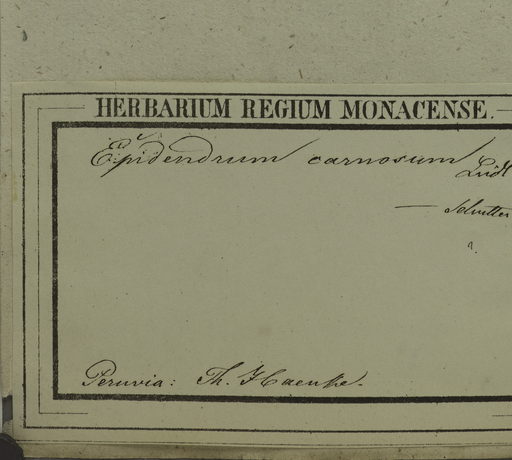 HERBARIUM REGIUM MONACENSE.
Epidendrum carnosum
Peruvia: Th. Haenke.